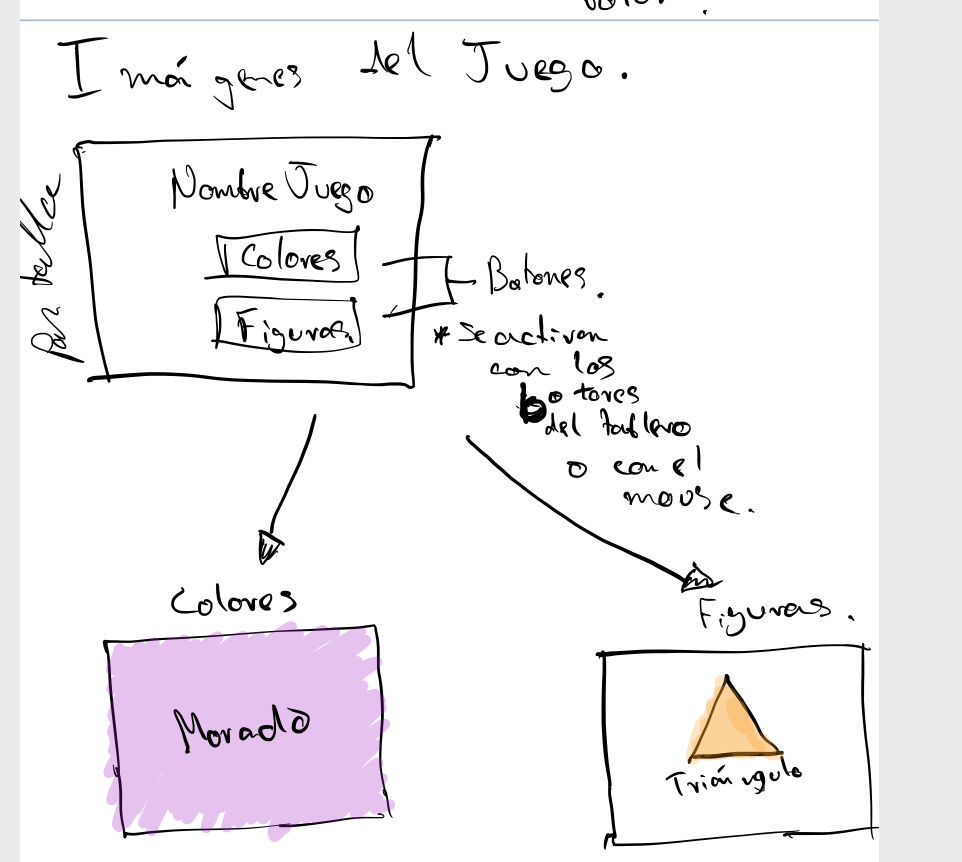 Imágenes del Juego.
Pantalla
Nombre Juego
Colores
Figuras.
Botones.
* Se activan
con los
botones
del tablero
o con el
mouse.
Colores
Morado
Figuras.
Triángulo